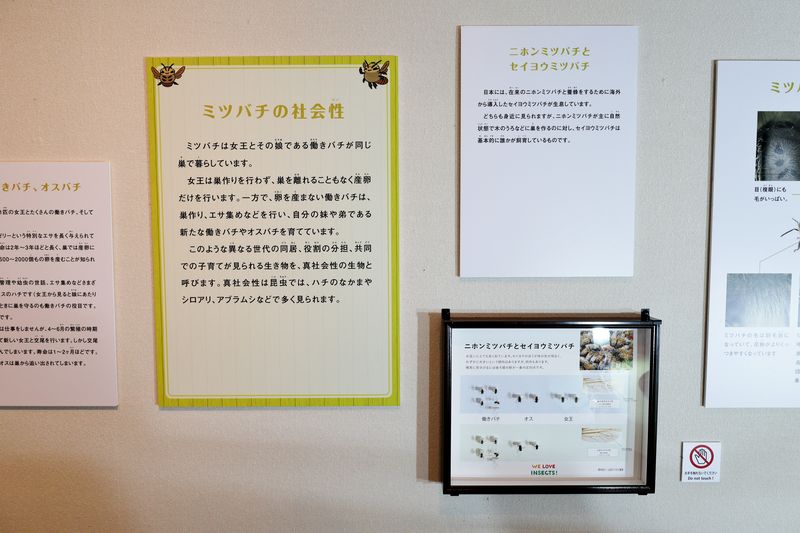 きバチ、オスバチ
匹の女王とたくさんの働きバチ、そして
ゼリーという特別なエサを長く与えられて
命は2年～3年ほどと長く、巣では産卵に
500～2000個もの卵を産むことが知られ
管理や幼虫の世話、エサ集めなどさまざ
スのハチです(女王から見ると娘にあたり
ときに巣を守るのも働きバチの役目です。
です。
は仕事をしませんが、4～6月の繁殖の時期
て新しい女王と交尾を行います。しかし交尾
んでしまいます。寿命は1～2ヶ月ほどです。
オスは巣から追い出されてしまいます。
ミツバチの社会性
ミツバチは女王とその娘である働きバチが同じ
巣で暮らしています。
女王は巣作りを行わず、巣を離れることもなく産卵
だけを行います。一方で、卵を産まない働きバチは、
巣作り、エサ集めなどを行い、自分の妹や弟である
新たな働きバチやオスバチを育てています。
このような異なる世代の同居、役割の分担、共同
での子育てが見られる生き物を、真社会性の生物と
呼びます。真社会性は昆虫では、ハチのなかまや
シロアリ、アブラムシなどで多く見られます。
ニホンミツバチと
セイヨウミツバチ
日本には、在来のニホンミツバチと養蜂をするために海外
から導入したセイヨウミツバチが生息しています。
どちらも身近に見られますが、ニホンミツバチが主に自然
状態で木のうろなどに巣を作るのに対し、セイヨウミツバチは
基本的に誰かが飼育しているものです。
ニホンミツバチとセイヨウミツバチ
働きバチ
オス
女王
WE LOVE
INSECTS!
ミツバ
目(複眼)にも
毛がいっぱい。
ミツバチの毛は羽毛状に
なっていて、花粉がよりくっ
つきやすくなっています
お手を触れないでください
Do not touch!